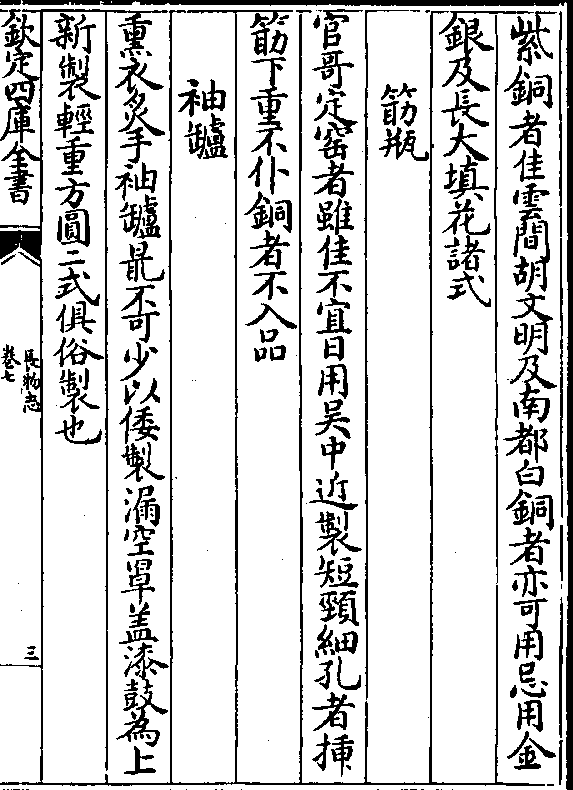 紫銅者佳雲間胡文明及南都白銅者亦可用忌用金
銀及長大填花諸式
筯瓶
官哥定窑者雖佳不宜日用吴中近製短頸細孔者揷
筯下重不仆銅者不入品
袖罏
熏衣炙手袖罏最不可少以倭製漏空罩盖漆鼓為上
新製輕重方圓二式俱俗製也
欽定四庫全書
長物志
卷七
三